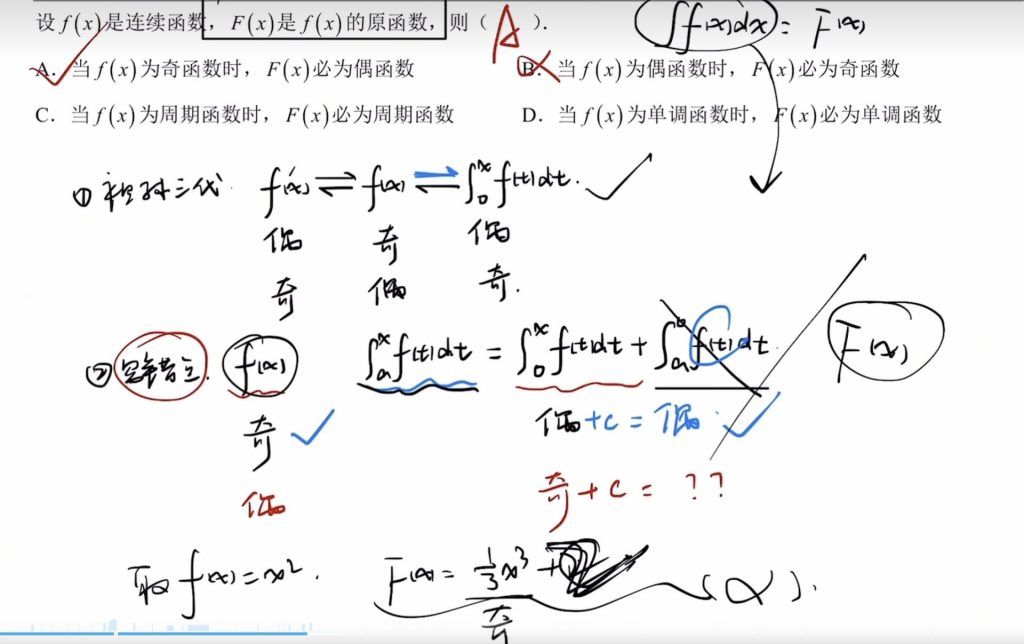 设f(x)是连续函数，F(x)是f(x)的原函数，则（ A ）. ∫f(x)dx = F(x)
A．当f(x)为奇函数时，F(x)必为偶函数 B．当f(x)为偶函数时，F(x)必为奇函数
C．当f(x)为周期函数时，F(x)必为周期函数 D．当f(x)为单调函数时，F(x)必为单调函数
① 三代 f'(x) ⇌ f(x) ⇌ ∫₀ˣ f(t)dt. ✓
偶 奇 偶
奇 偶 奇.
② f(x) ∫ₐˣ f(t)dt = ∫₀ˣ f(t)dt + ∫ₐ⁰ f(t)dt F(x)
奇 ✓ 偶+c = 偶. ✓
偶 奇+c = ??
取 f(x)=x². F(x)= 1/3 x³ + (×).
奇